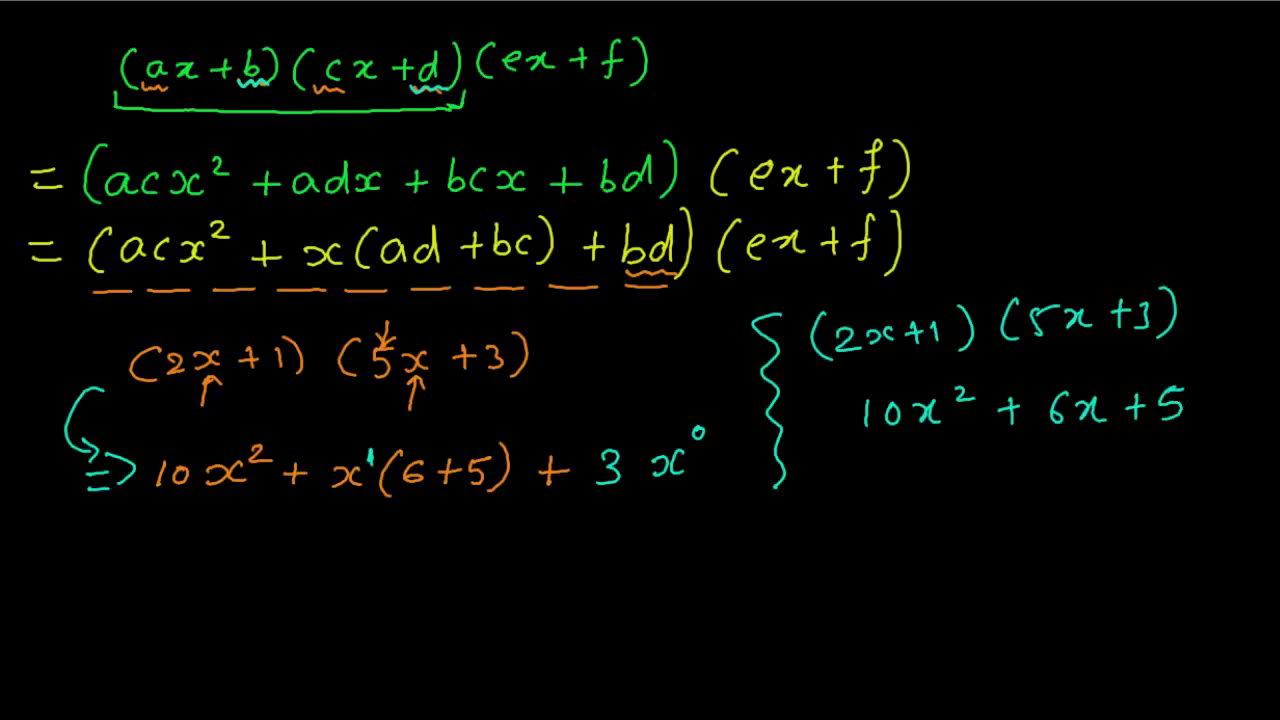 (ax+b)(cx+d)(ex+f)
= (acx² + adx + bcx + bd) (ex+f)
= (acx² + x(ad+bc) + bd) (ex+f)
(2x+1) (5x+3)
⇒ 10x² + x¹(6+5) + 3 x⁰
(2x+1) (5x+3)
10x² + 6x + 5